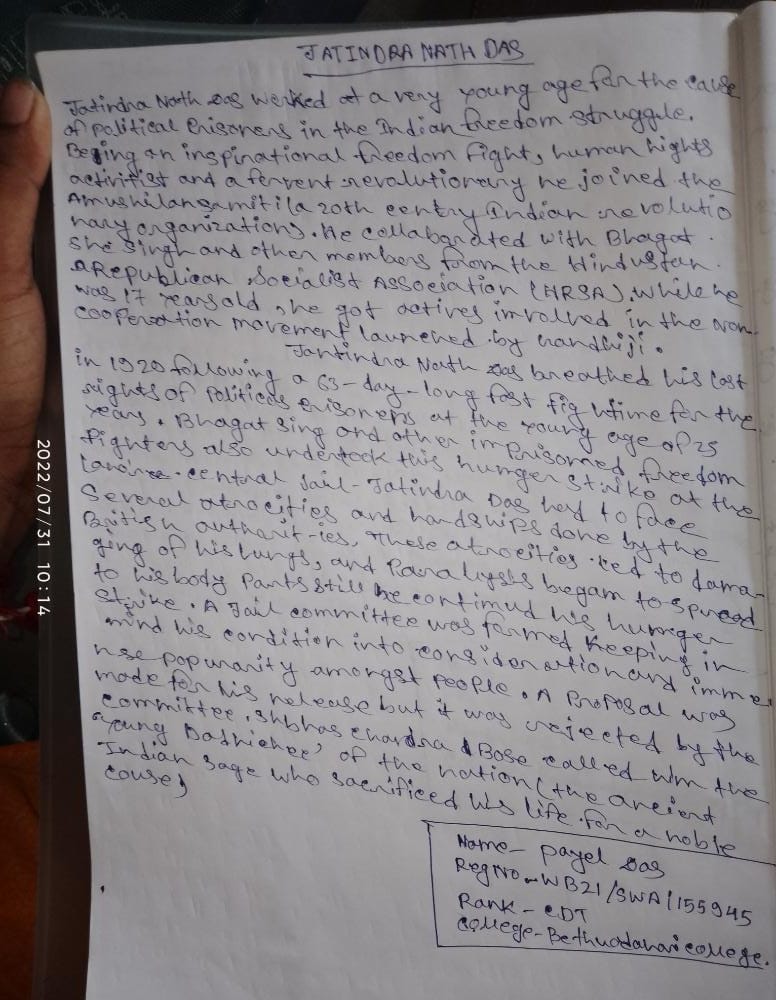 JATINDRA NATH DAS
Jatindra Nath Das worked at a very young age for the cause
of political Prisoners in the Indian freedom struggle.
Beging an inspirational freedom fight, human rights
activitist and a fervent revolutionary he joined the
Amushilansamiti(a 20th centry Indian revolutio
nary organization). He collaborated with Bhagat
she singh and other members from the Hindustan
a Republican Socialist Association (HRSA). While he
was 17 years old, he got actives imvolved in the non-
cooperation movement launched by Gandhiji.
Jantindra Nath Das breathed his last
in 1920 following a 63-day-long fast fightime for the
rights of Politicas Prisoners at the young age of 25
years. Bhagat sing and other imprisomed freedom
fighters also undertook this hunger strike at the
central Jail-Jatindra Das had to face
Several atrocities and hardships done by the
British authorit-ies, These atrocities led to dama-
ging of his lungs, and Paralysis began to spread
to his body Parts still he continud his hunger
strike. A Jail committee was formed keeping in
mind his condition into consideration and imme
nse popunarity amongst people. A Proposal was
made for his release but it was rejected by the
committee. Shbhas chandra Bose called him the
'young Dadhichee' of the nation (the ancient
Indian sage who sacrificed his life for a noble
cause)
Name- Payel Das
Reg No - WB21/SWA/155945
Rank - CDT
College-Bethuadahari college.
2022/07/31 10:14